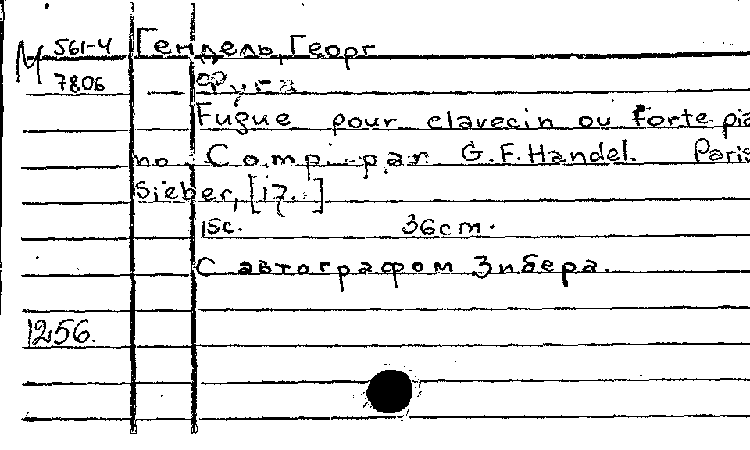 М 561-4 Гендель, Георг
7806 Фуга
Fugue pour clavecin ou Forte-pia
no. Comp. par G.F. Handel. Paris
Sieber, [17..]
15с. 36cm.
С автографом Зибера.
1256.